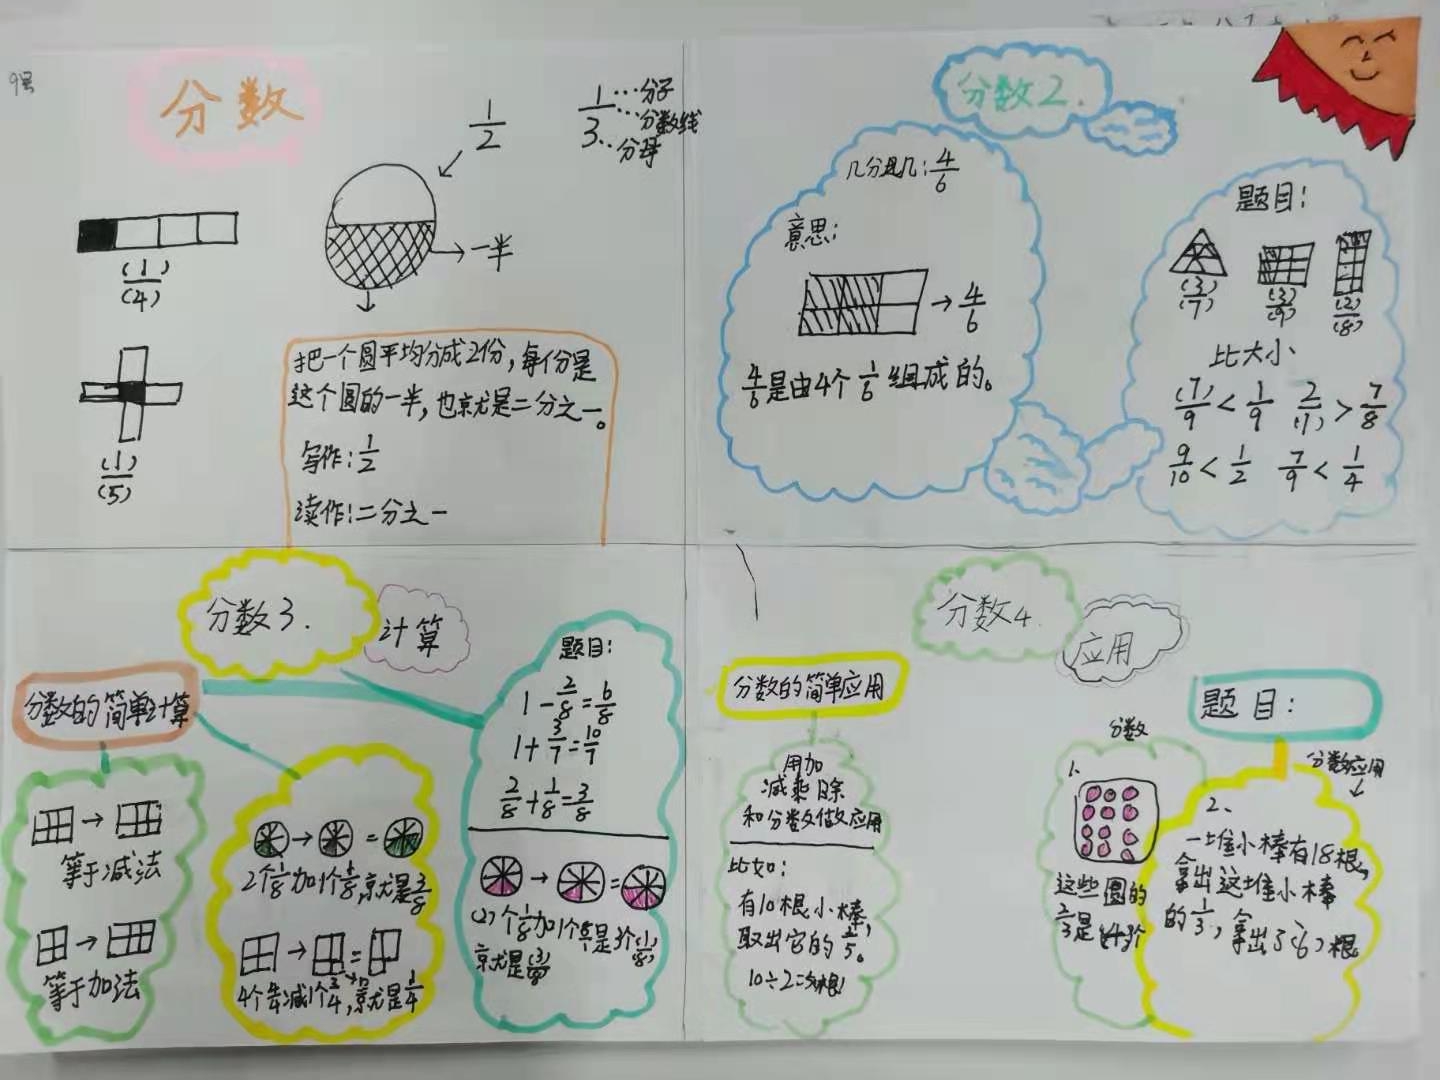 9号
分数
1/2
1/3
…分子
…分数线
…分母
(1)/(4)
一半
(1)/(5)
把一个圆平均分成2份,每份是
这个圆的一半,也就是二分之一。
写作:1/2
读作:二分之一
分数2.
几分之几:4/6
意思:
→4/6
4/6是由4个1/6组成的。
题目:
(3)/(7) (3)/(9) (2)/(8)
比大小
(7)/9<1/9 2/(7)>7/8
9/10<1/2 7/9<1/4
分数3.
计算
分数的简单计算
等于减法
等于加法
2个1/8加1个1/8,就是3/8
题目:
1-2/8=6/8
1+3/7=10/7
2/8+1/8=3/8
就是(3)/(8)
分数4.
应用
分数的简单应用
用加
减乘除
和分数做应用
比如:
有10根小棒,
取出它的
题目:
分数
1、
这些圆的
2/3是
分数应用
2、
一堆小棒有18根,
拿出这堆小棒
的1/3,拿出了(6)根